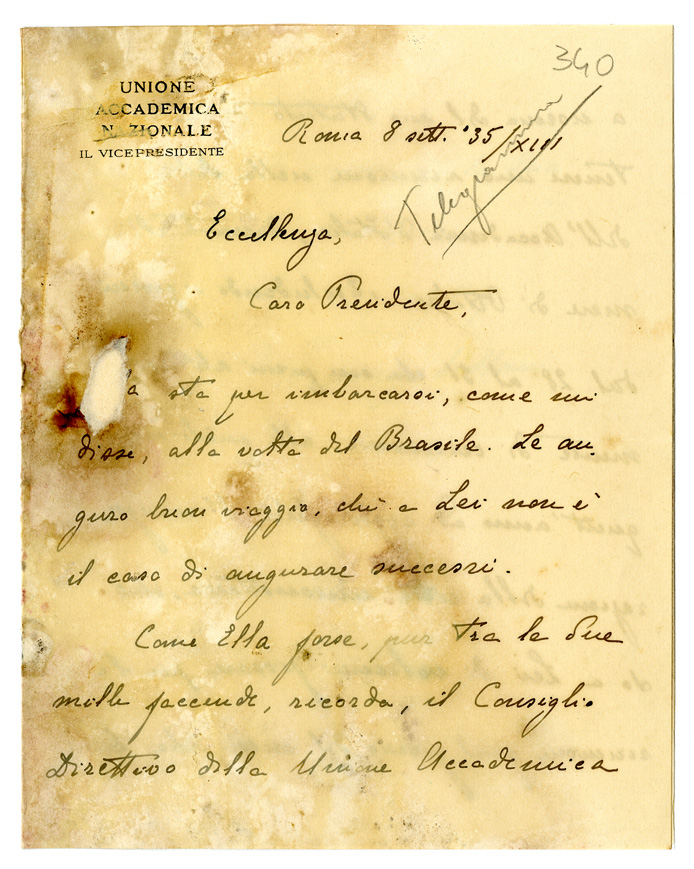 340
UNIONE
ACCADEMICA
N ZIONALE
IL VICEPRESIDENTE
Roma 8 sett. '35/XIII
Telegramma
Eccellenza,
Caro Presidente,
la sta per imbarcarsi, come mi
disse, alla volta del Brasile. Le au-
guro buon viaggio, chè a Lei non è
il caso di augurare successi.
Come Ella forse, pur tra le Sue
mille faccende, ricorda, il Consiglio
Direttivo della Unione Accademica